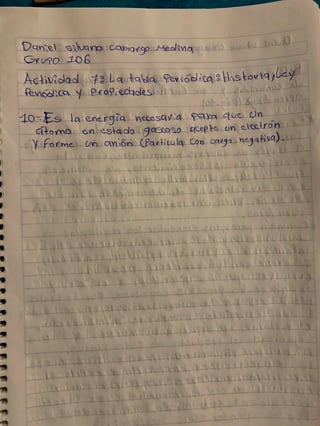 Daniel silvano camargo Medina
Grupo 106
Actividad 7: La tabla Periódica: Historia, Ley
Periódica y Propiedades
10-Es la energía necesaria para que un
átomo en estado gaseoso acepte un electrón
y forme un anión (Partícula con carga negativa).